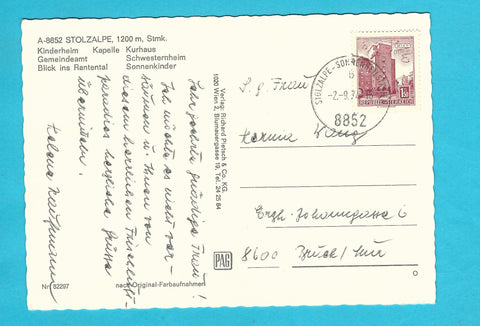 A-8852 STOLZALPE, 1200 m, Stmk.
Kinderheim Kapelle Kurhaus
Gemeindeamt Schwesternheim
Blick ins Rantental Sonnenkinder
Sehr geehrte gnädige Frau!
Ich möchte es nicht ver-
säumen u. Ihnen von
diesem herrlichen
paradies herzliche Grüsse
übermitteln.
Helene
Nr. 82297
nach Original-Farbaufnahmen
Verlag: Richard Pietsch & Co. KG.
1020 Wien, Gr. Blumauergasse 19, Tel. 24 25 64
PAG
STOLZALPE-
8852
REPUBLIK ÖSTERREICH
S. g. Frau
Ergh. Johanngasse 6
8600 Bruck/Mur